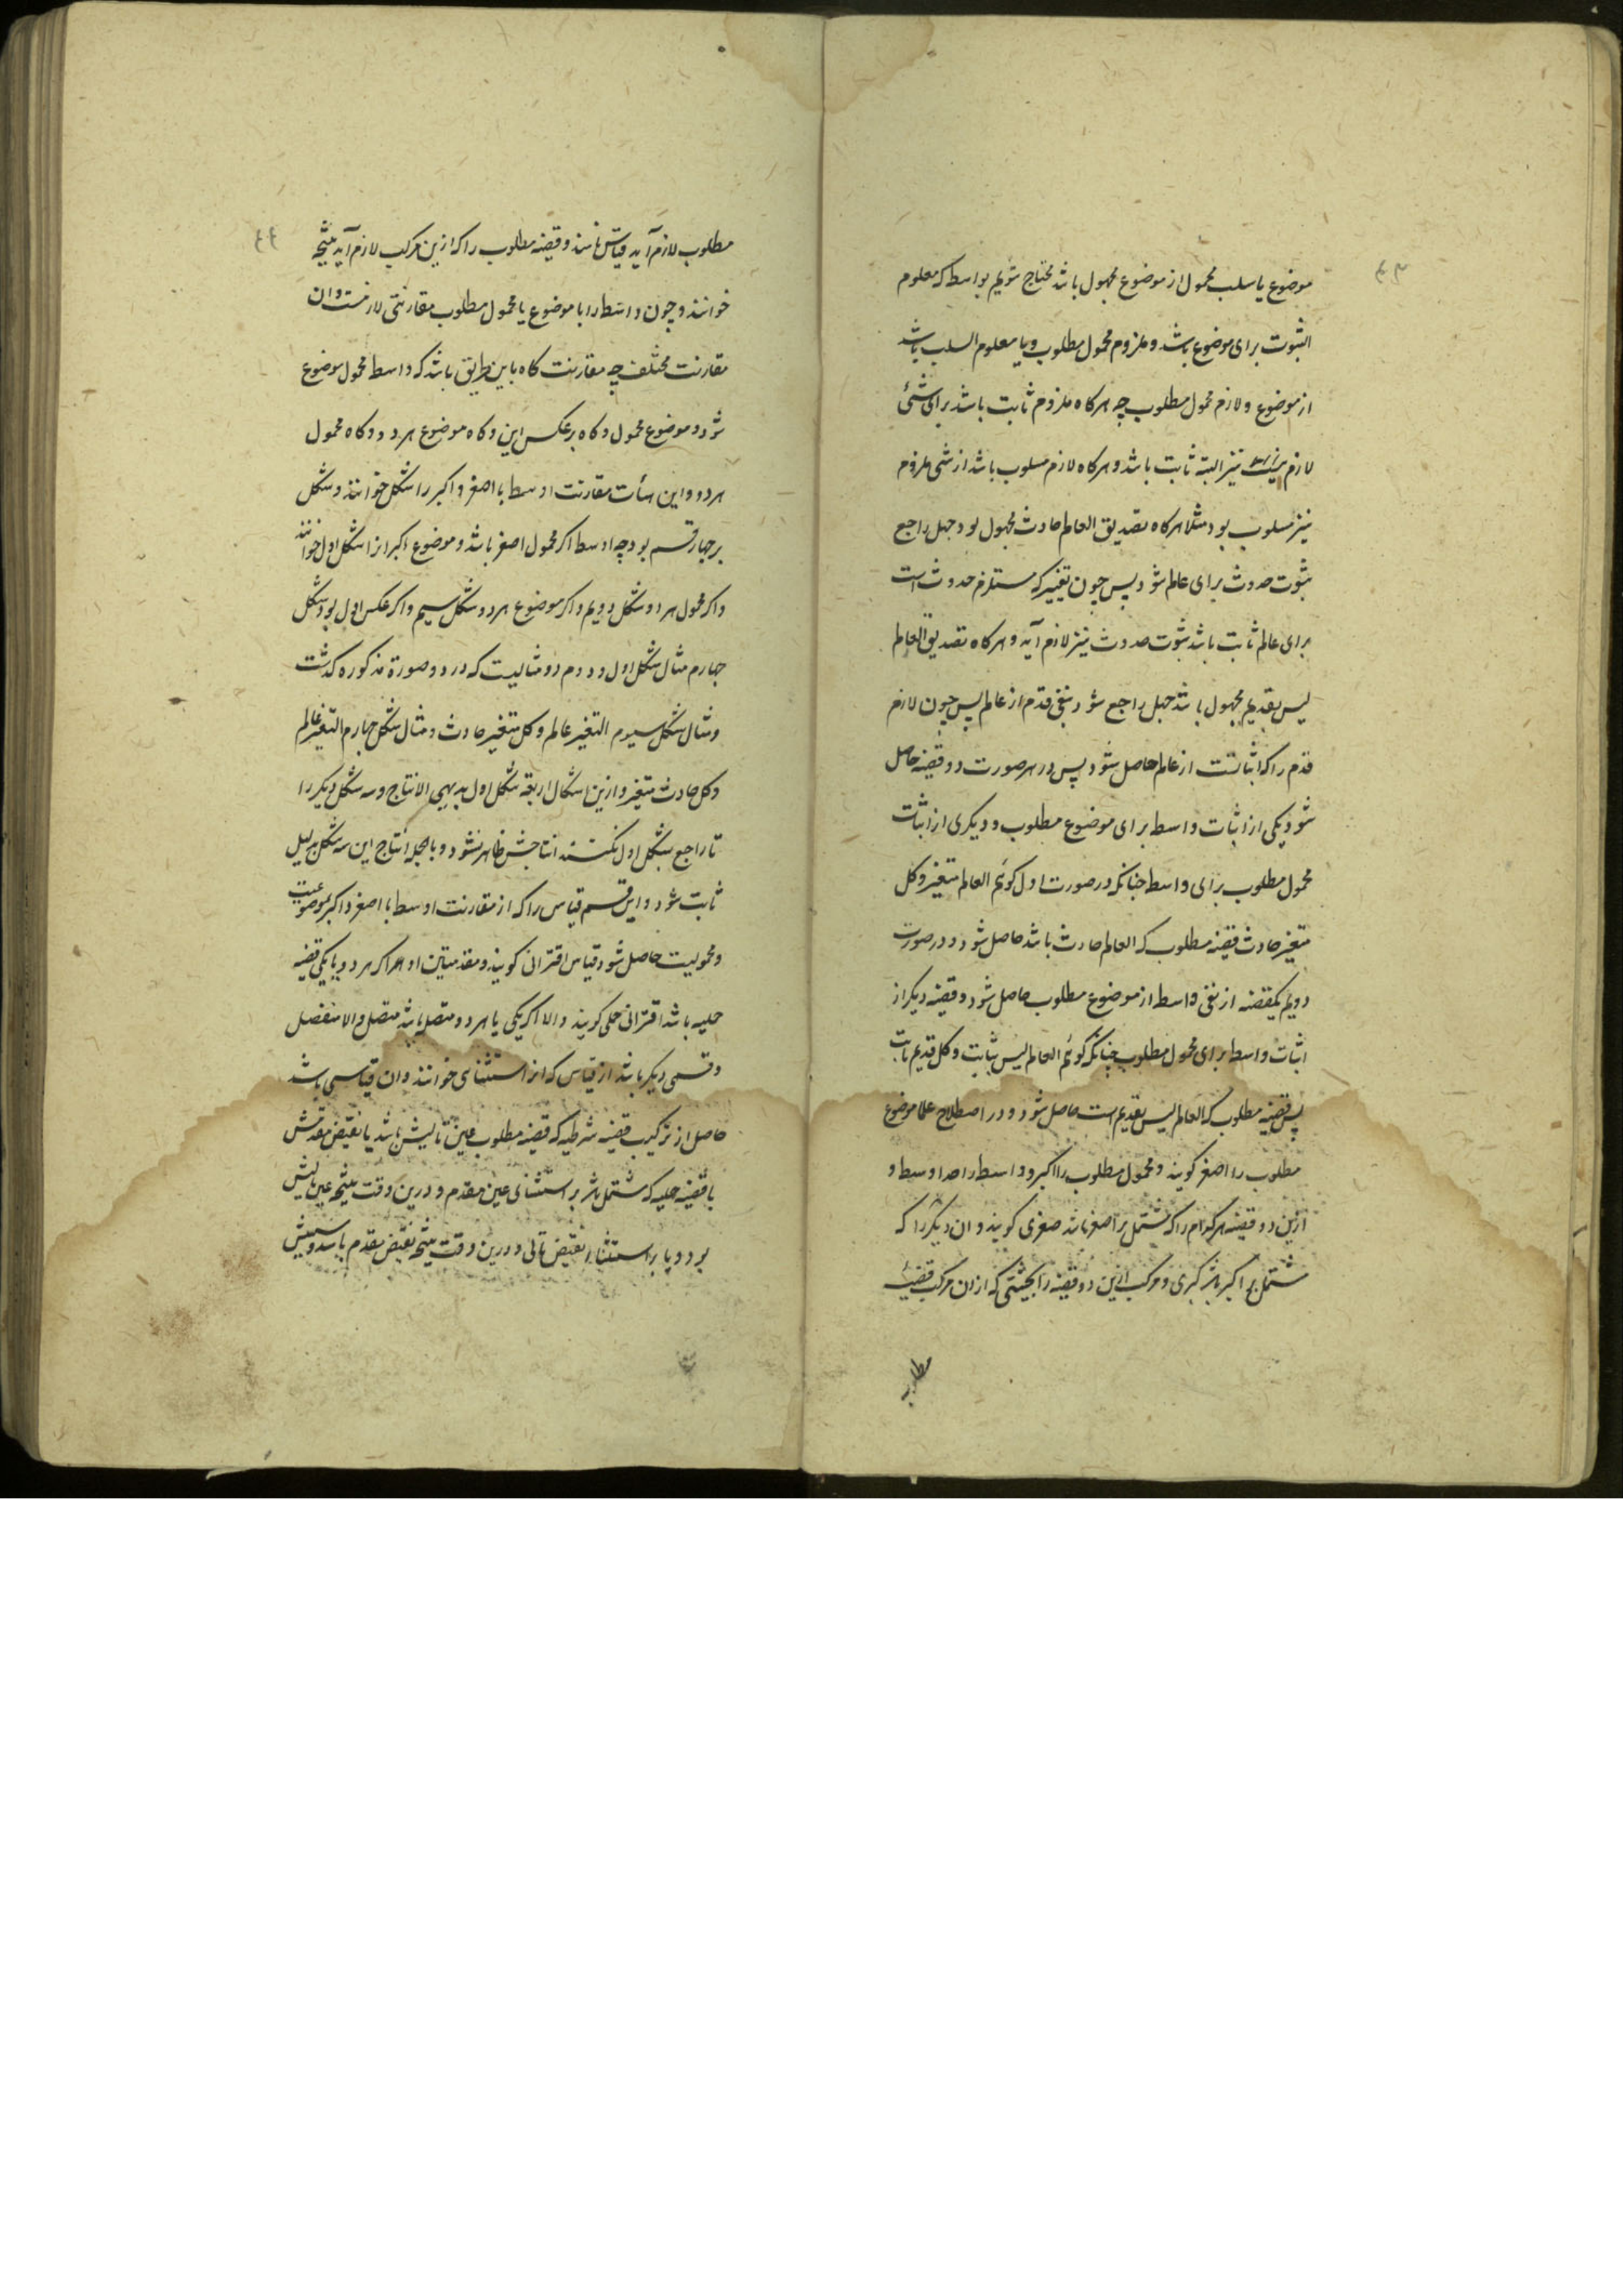 ٤٣
موضوع یا سلب محمول از موضوع مجهول باشد محتاج شویم بواسطه که معلوم
الثبوت برای موضوع باشد و ملزوم محمول مطلوب و یا معلوم السلب باشد
از موضوع و لازم محمول مطلوب چه هرکاه ملزوم ثابت باشد برای شئ
لازم نیز البته ثابت باشد و هرکاه لازم مسلوب باشد از شی ملزوم
نیز مسلوب بود مثلا هرکاه تصدیق العالم حادث مجهول بود جهل راجع
بثبوت حدوث برای عالم شود پس چون تغییر که مستلزم حدوث است
برای عالم ثابت باشد ثبوت حدوث نیز لازم آید و هرکاه تصدیق العالم
لیس بقدیم مجهول باشد جهل راجع شود بنفی قدم از عالم پس چون لازم
قدم را که اثباتست از عالم حاصل شود پس در هر صورت دو قضیه حاصل
شود یکی از اثبات واسطه برای موضوع مطلوب و دیکری از اثبات
محمول مطلوب برای واسطه چنانکه در صورت اول کوئیم العالم متغیر و کل
متغیر حادث قضیه مطلوب که العالم حادث باشد حاصل شود و در صورت
دویم یکقضیه از نفی واسطه از موضوع مطلوب حاصل شود و قضیه دیکر از
اثبات واسطه برای محمول مطلوب چنانکه کوئیم العالم لیس بثابت و کل قدیم ثابت
پس قضیه مطلوب که العالم لیس بقدیم است حاصل شود و در اصطلاح علما موضوع
مطلوب را اصغر کویند و محمول مطلوب را اکبر و واسطه را حد اوسط و
ازین دو قضیه هر کدام را که مشتمل بر اصغر باشد صغری کویند و ان دیکر را که
مشتمل بر اکبر باشد کبری و مرکب ازین دو قضیه را بحیثیتی که از ان مرکب قضیه
مطلوب
٤٤
مطلوب لازم آید قیاس نامند و قضیه مطلوب را که ازین مرکب لازم آید نتیجه
خوانند و چون واسطه را با موضوع یا محمول مطلوب مقارنتی لازمست و ان
مقارنت مختلف چه مقارنت کاه باین طریق باشد که واسطه محمول موضوع
شود و موضوع محمول و کاه برعکس این و کاه موضوع هر دو و کاه محمول
هر دو و این هیأت مقارنت اوسط با اصغر و اکبر را شکل خوانند و شکل
بر چهار قسم بود چه اوسط اکر محمول اصغر باشد و موضوع اکبر انرا شکل اول خوانند
و اکر محمول هر دو شکل دویم و اکر موضوع هر دو شکل سیم و اکر عکس اول بود شکل
چهارم مثال شکل اول و دوم دو مثالیست که در دو صورة مذکوره کذشت
و مثال شکل سیوم المتغیر عالم و کل متغیر حادث و مثال شکل چهارم المتغیر عالم
و کل حادث متغیر و ازین اشکال اربعه شکل اول بدیهی الانتاج و سه شکل دیکر را
تا راجع بشکل اول نکنند انتاجش ظاهر نشود و بالجمله انتاج این سه شکل بدلیل
ثابت شود و این قسم قیاس را که از مقارنت اوسط با اصغر و اکبر بموضوعیت
و محمولیت حاصل شود قیاس اقترانی کویند و مقدمتین او هر اکر هر دو یا یکی قضیه
حملیه باشد اقترانی حملی کویند و الا اکر یکی یا هر دو متصل باشد متصل و الا منفصل
و قسمی دیکر باشد از قیاس که انرا استثنای خوانند و ان قیاسی باشد
حاصل از ترکیب قضیه شرطیه که قضیه مطلوب عین تالیش باشد یا نقیض مقدمش
با قضیه حملیه که مشتمل باشد بر استثنای عین مقدم و درین وقت نتیجه عین تالیش
بود و یا بر استثناء نقیض تالی و درین وقت نتیجه نقیض مقدم باشد